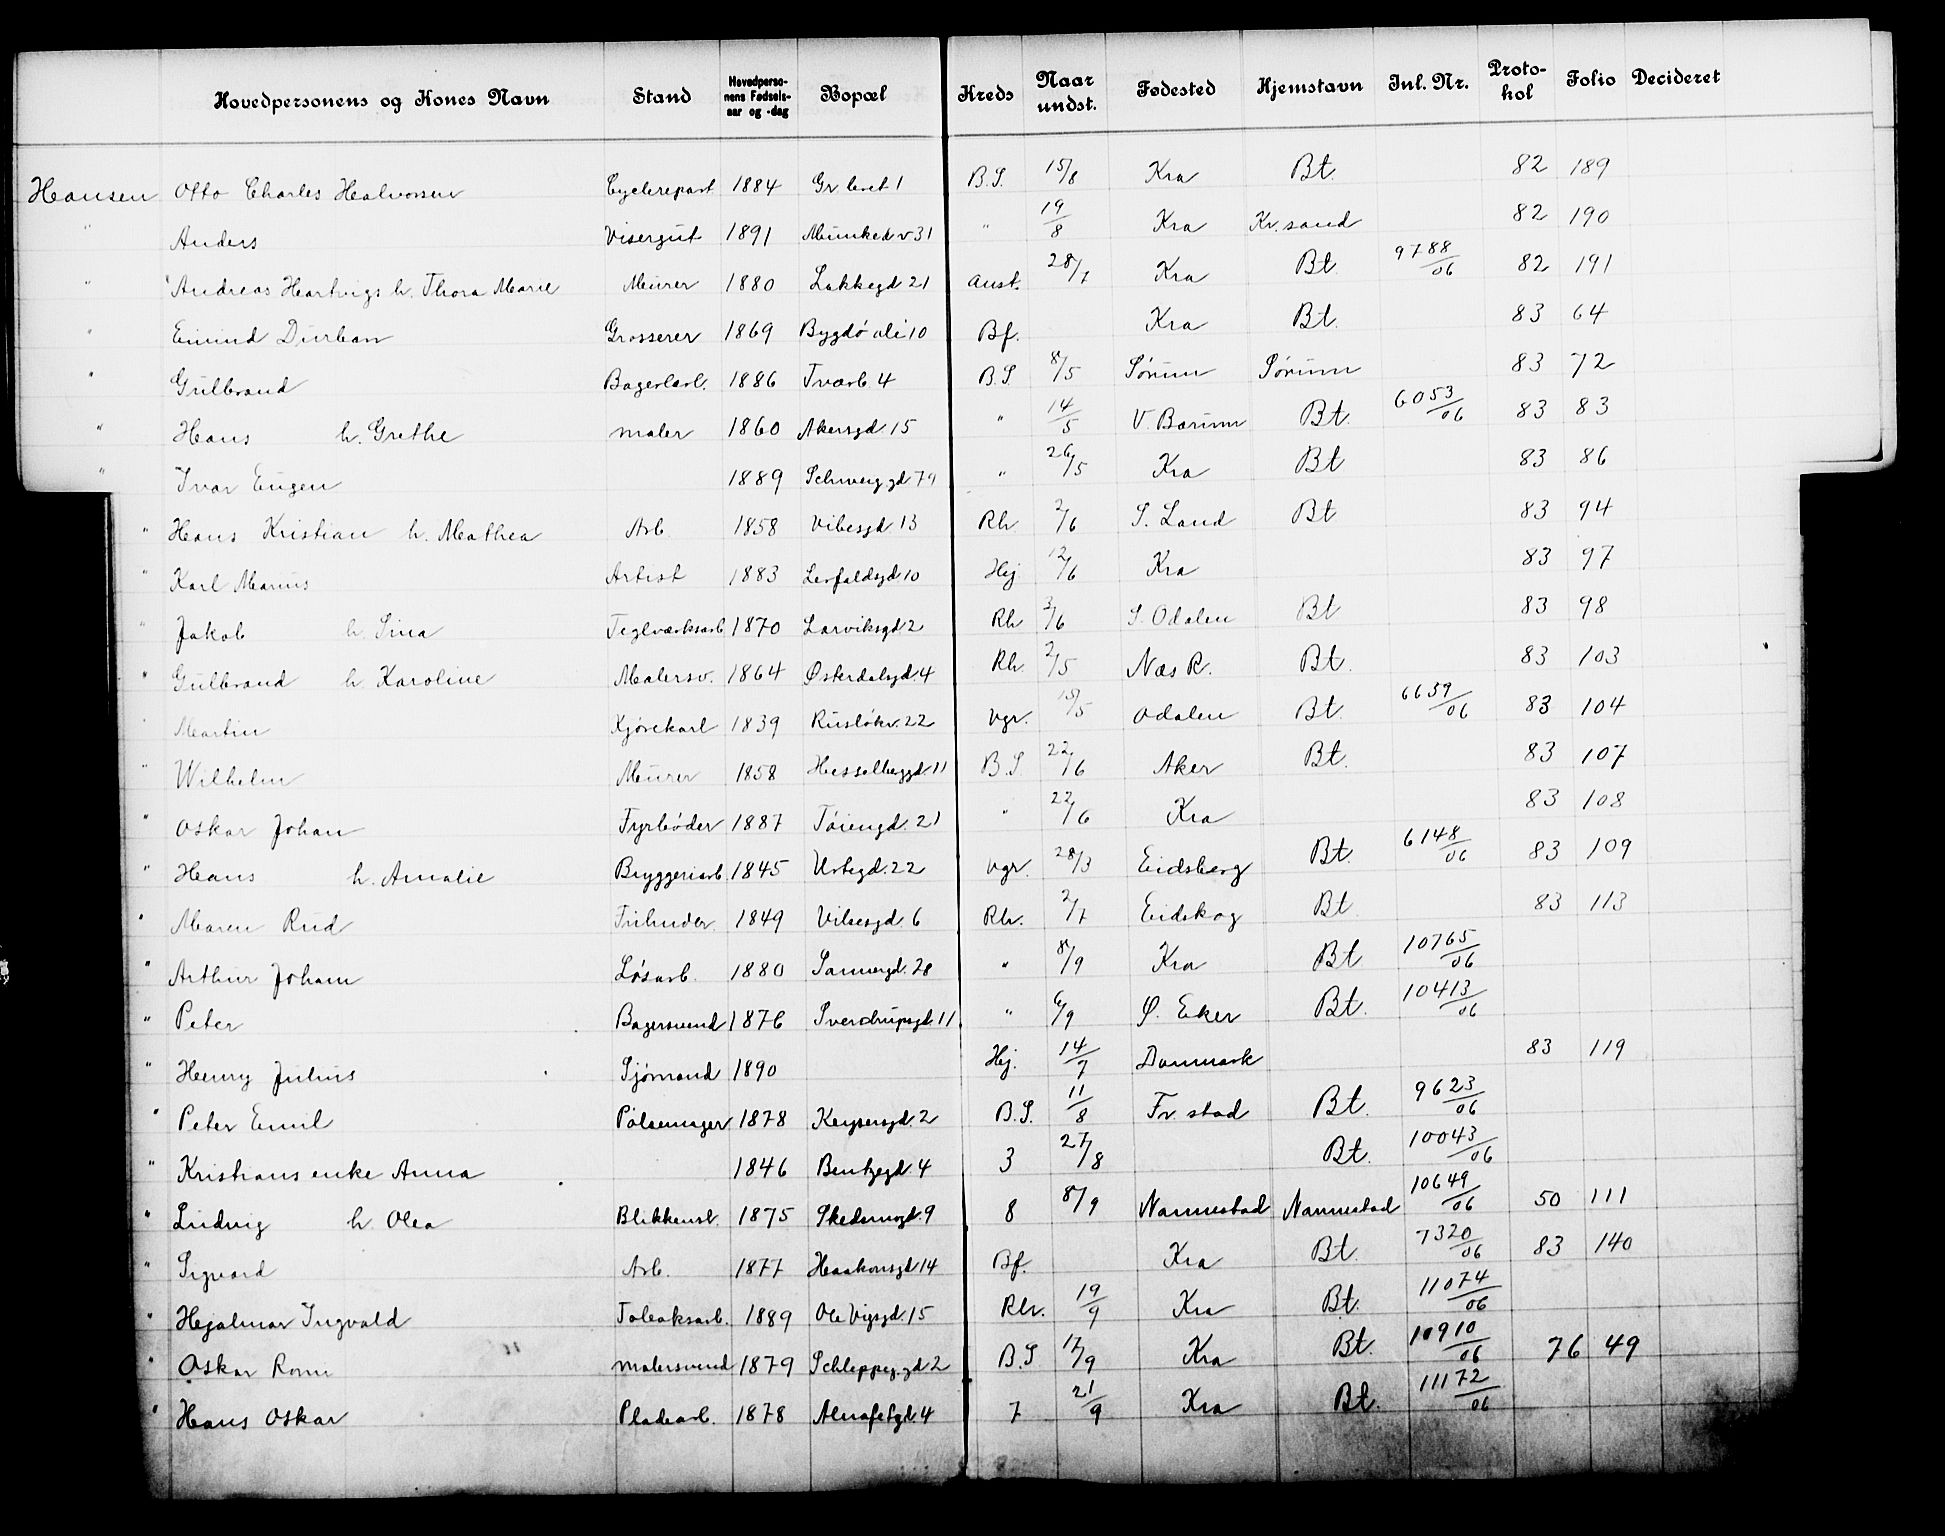 Hovedpersonens og Kones Navn Stand Hovedperso-nens Fødsels-aar og -dag Bopæl Kreds Naar undst. Fødested Hjemstavn Inl. Nr. Proto-kol Folio Decideret
Hansen Otto Charles Halvorsen Cyclerepart 1884 Gr leret 1 B.S. 15/8 Kra Bt. 82 189
" Anders Visergut 1891 Munked v 31 " 19/8 Kra Kr.sand 82 190
" Andreas Hartvigs h. Thora Marie Murer 1880 Lakkegd 21 Aust. 28/7 Kra Bt 9788/06 82 191
" Eivind Durban Grosserer 1869 Bygdø alé 10 Bf. Kra Bt. 83 64
" Gulbrand Bagerlærl. 1886 Tværb. 4 B.S. 8/5 Sørum Sørum 83 72
" Hans h. Grethe Maler 1860 Akersgd. 15 " 14/5 V. Bærum Bt. 6053/06 83 83
" Ivar Eugen 1889 Schweig.gd 79 " 26/5 Kra Bt 83 86
" Hans Kristian h. Mathea Arb. 1858 Vibesgd 13 Rh 2/6 S. Land Bt 83 94
" Karl Marius Artist 1883 Lerfaldsgd 10 Hej 12/6 Kra 83 97
" Jakob h. Sina Teglværksarb 1870 Larviksgd 2 Rh 2/6 S. Odalen Bt 83 98
" Gulbrand h. Karoline Malersv. 1864 Østerdalsgd. 4 Rh. 2/5 Næs R. Bt. 83 103
" Martin Kjørekarl 1839 Ruseløkv. 22 Vgr. 15/5 Odalen Bt. 6659/06 83 104
" Wilhelm Murer 1858 Hesselbggd. 11 B.S 22/6 Aker Bt. 83 107
" Oskar Johan Fyrbøder 1887 Tøiengd. 21 " 22/6 Kra 83 108
" Hans h. Amalie Bryggeriarb. 1845 Urtegd. 22 Vgr. 28/3 Eidsberg Bt. 6148/06 83 109
" Maren Rud 1849 Vibesgd. 6 Rh. 2/7 Eidskog Bt. 83 113
" Arthur Johan Løsarb. 1880 Sannergd. 28 " 8/9 Kra Bt 10765/06
" Peter Bagersvend 1876 Sverdrupsgd. 11. " 6/9 Ø. Eker Bt. 10413/06
" Henry Julius Sjømand 1890 Hej. 14/7 Danmark 83 119
" Peter Emil Pølsemager 1878 Keysersgd. 2 B.S. 11/8 Fr. stad Bt. 9623/06
" Kristians enke Anna 1846 Bentzegd. 4 3 27/8 Bt. 10043/06
" Ludvig h. Olea Blikkensl. 1875 Skedsmogd. 9 8 8/9 Nannestad Nannestad 10649/06 50 111
" Sigvard Arb. 1877 Haakonsgd 14 Bf. Kra Bt. 7320/06 83 140
" Hjalmar Ingvald Tobaksarb. 1889 Ole Vigsgd. 15 Rh. 19/9 Kra Bt. 11074/06
" Oskar Rom Malersvend 1879 Schleppeg.gd 2 B.S 17/9 Kra Bt. 10910/06 76 49
" Hans Oskar Pladearb. 1878 Almafetgd. 4 7 21/9 Kra Bt. 11172/06